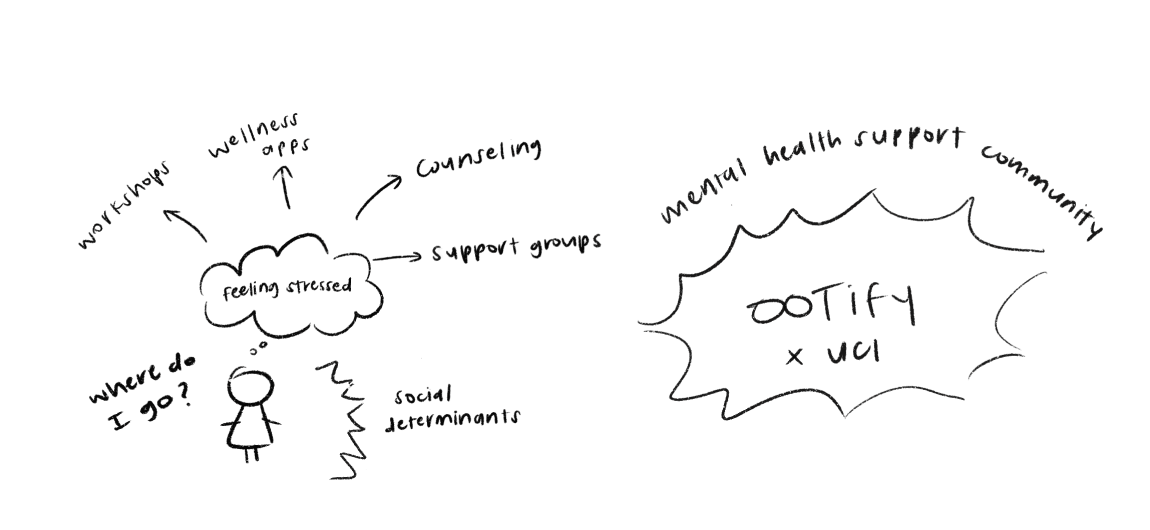 workshops
wellness
apps
counseling
support groups
feeling stressed
where do
I go?
social
determinants
mental health support community
ooTify
x UCI